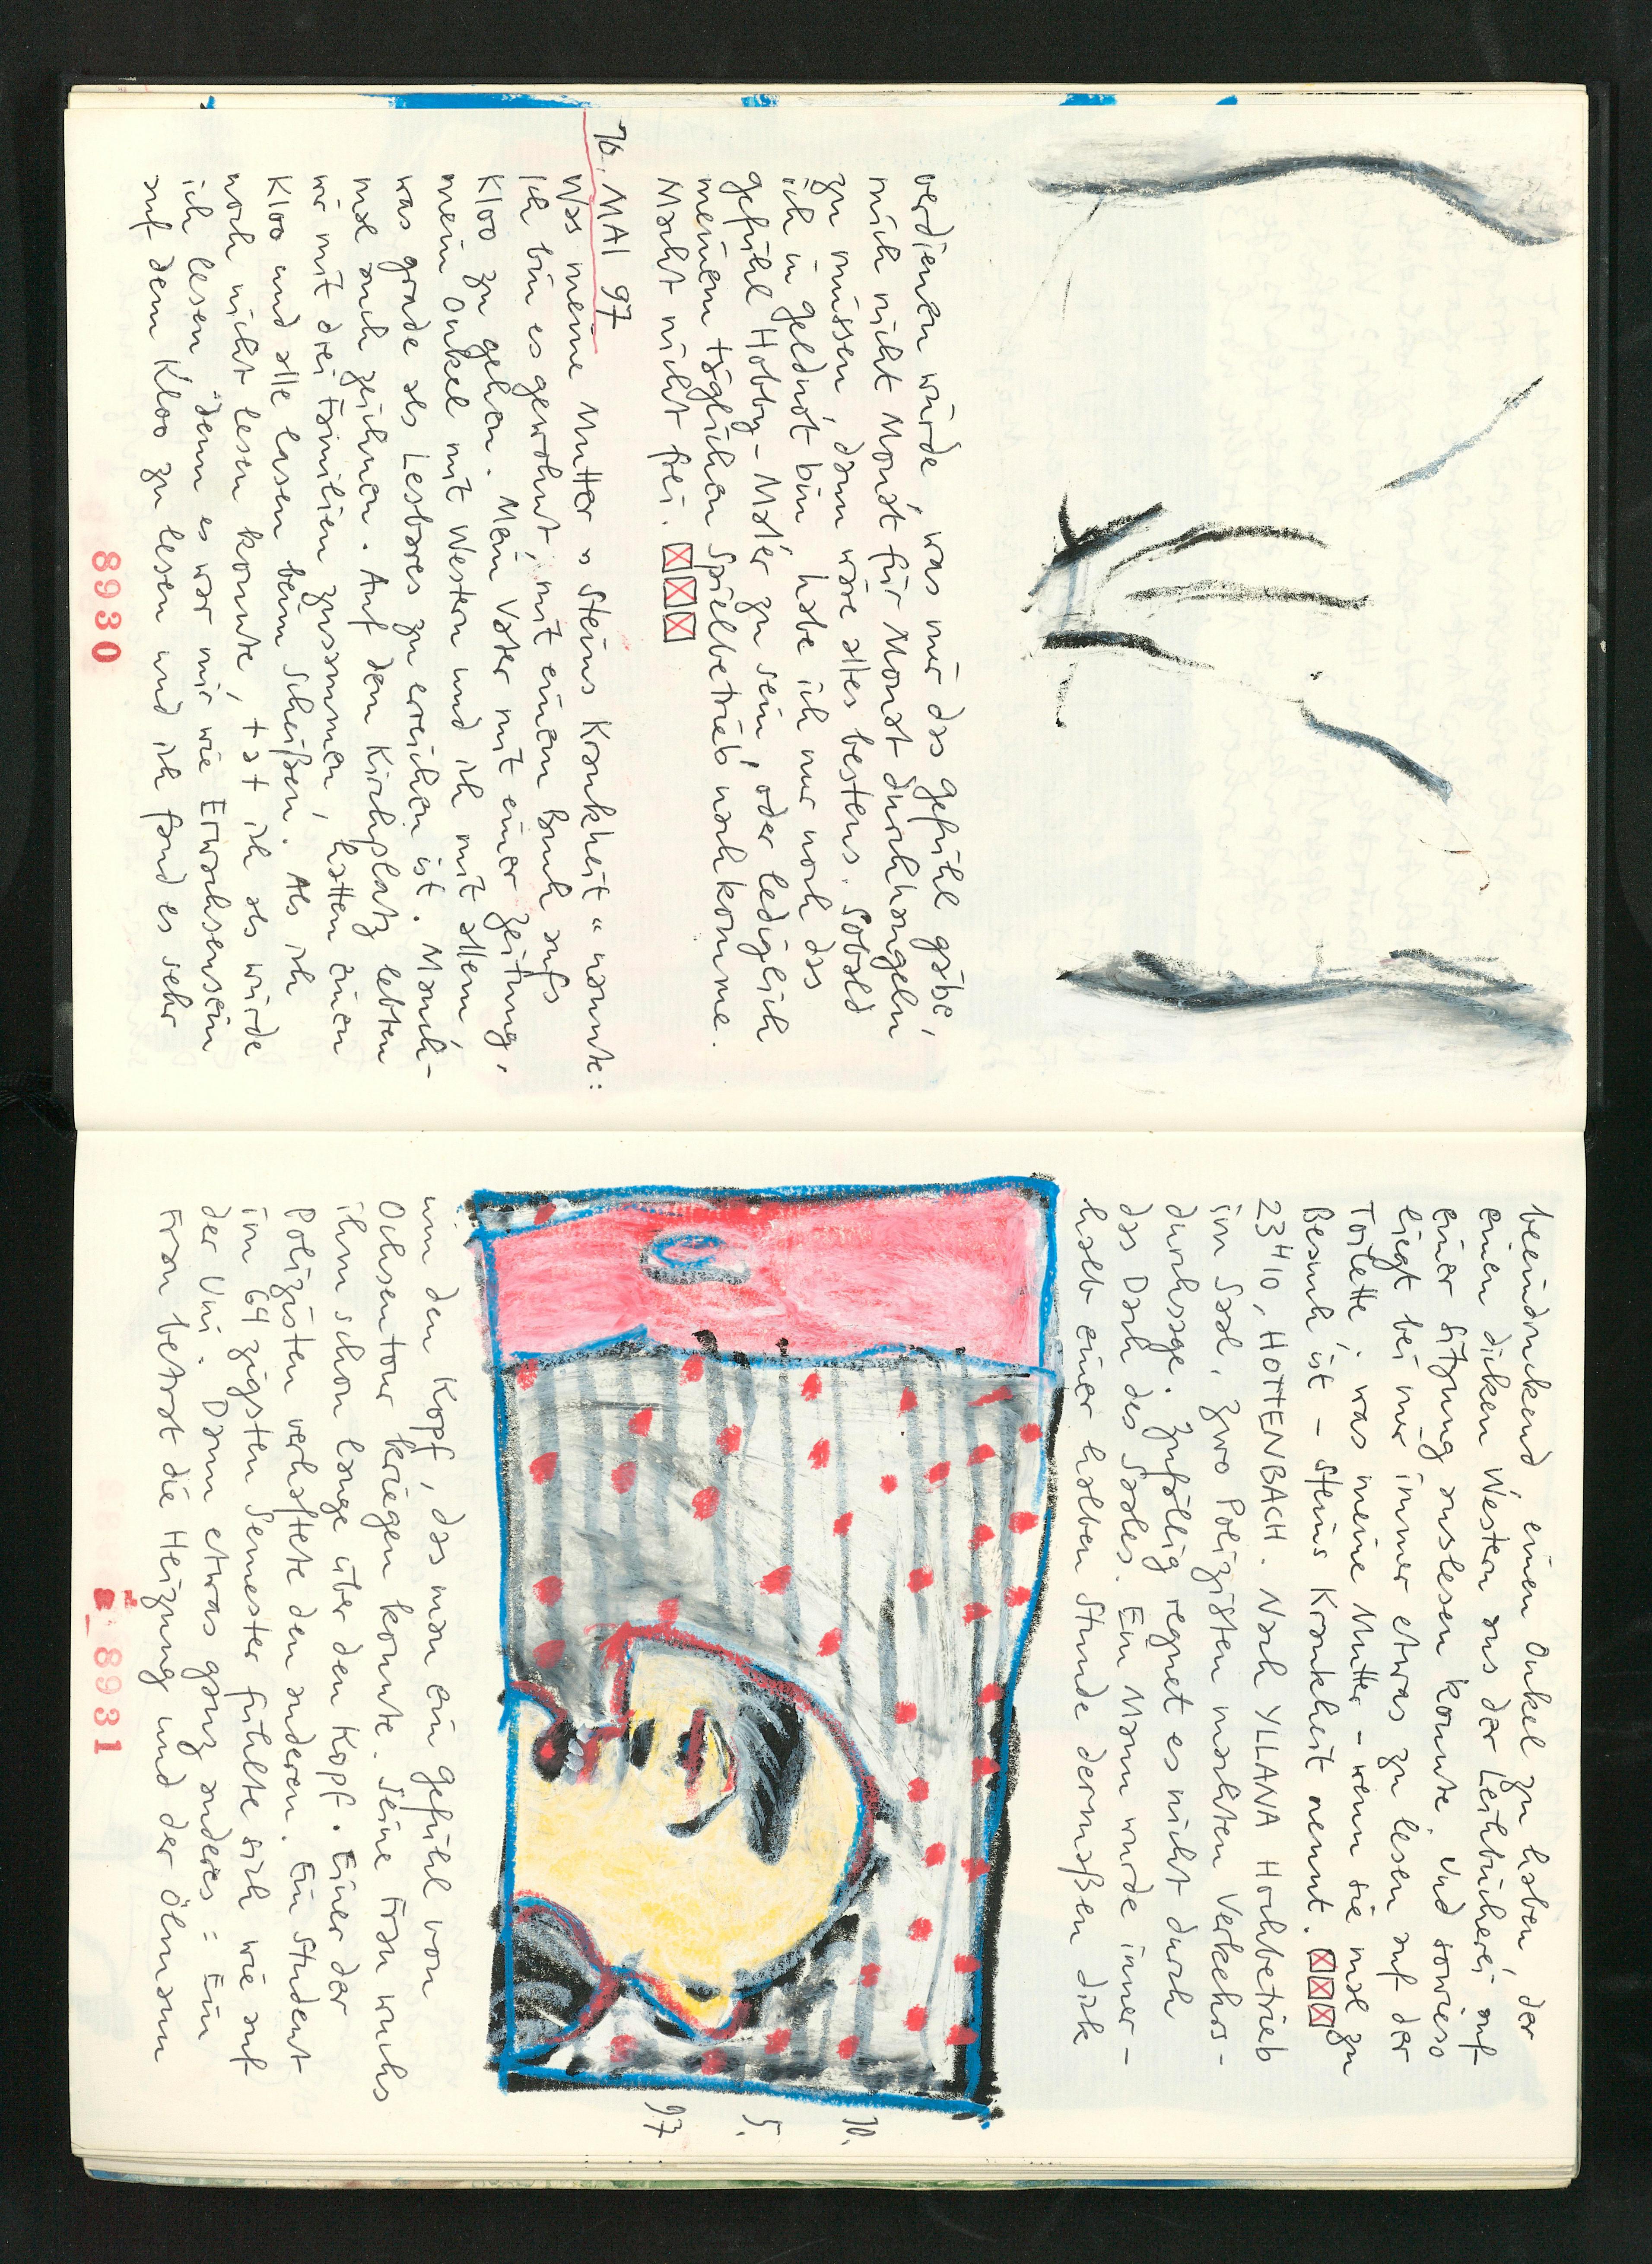 verdienen würde, was mir das gefühl gäbe,
mich nicht Monat für Monat durchhangeln
zu müssen, dann wäre alles bestens. Sobald
ich in geldnot bin habe ich nur noch das
gefühl Hobby-Maler zu sein, oder lediglich
meinem täglichen Spielbetrieb nachkomme.
Macht nicht frei.
10. MAI 97
Was meine Mutter „Steins Krankheit“ nannte:
Ich bin es gewohnt, mit einem Buch aufs
Kloo zu gehen. Mein Vater mit einer Zeitung,
mein Onkel mit Western und ich mit allem,
was grade als Lesbares zu erreichen ist. Manch-
mal auch zeichnen. Auf dem Kirchplatz lebten
wir mit drei Familien zusammen, hatten einen
Kloo und alle lasen beim Scheißen. Als ich
noch nicht lesen konnte, tat ich als würde
ich lesen, denn es war mir wie Erwachsensein
auf dem Kloo zu lesen und ich fand es sehr
8930
beeindruckend einen Onkel zu haben, der
einen dicken Western aus der Leihbücherei auf
einer Sitzung auslesen konnte. Und sowieso
liegt bei mir immer etwas zu lesen auf der
Toilette, was meine Mutter – wenn sie mal zu
Besuch ist – Steins Krankheit nennt.
23⁴10, HOTTENBACH. Nach YLLANA Hochbetrieb
im Saal, zwo Polizisten machten Verkehrs-
durchsage. Zufällig regnet es nicht durch
das Dach des Saales. Ein Mann wurde inner-
halb einer halben Stunde dermaßen dick
10.
5.
97
um den Kopf, das man ein gefühl von
Ochsentour kriegen konnte. Seine Frau wuchs
ihm schon lange über den Kopf. Einer der
Polizisten verhaftete den anderen. Ein Student
im 64zigsten Semester fühlte sich wie auf
der Uni. Dann etwas ganz anderes: Ein
Frau betrat die Heizung und der Ölmann
8931